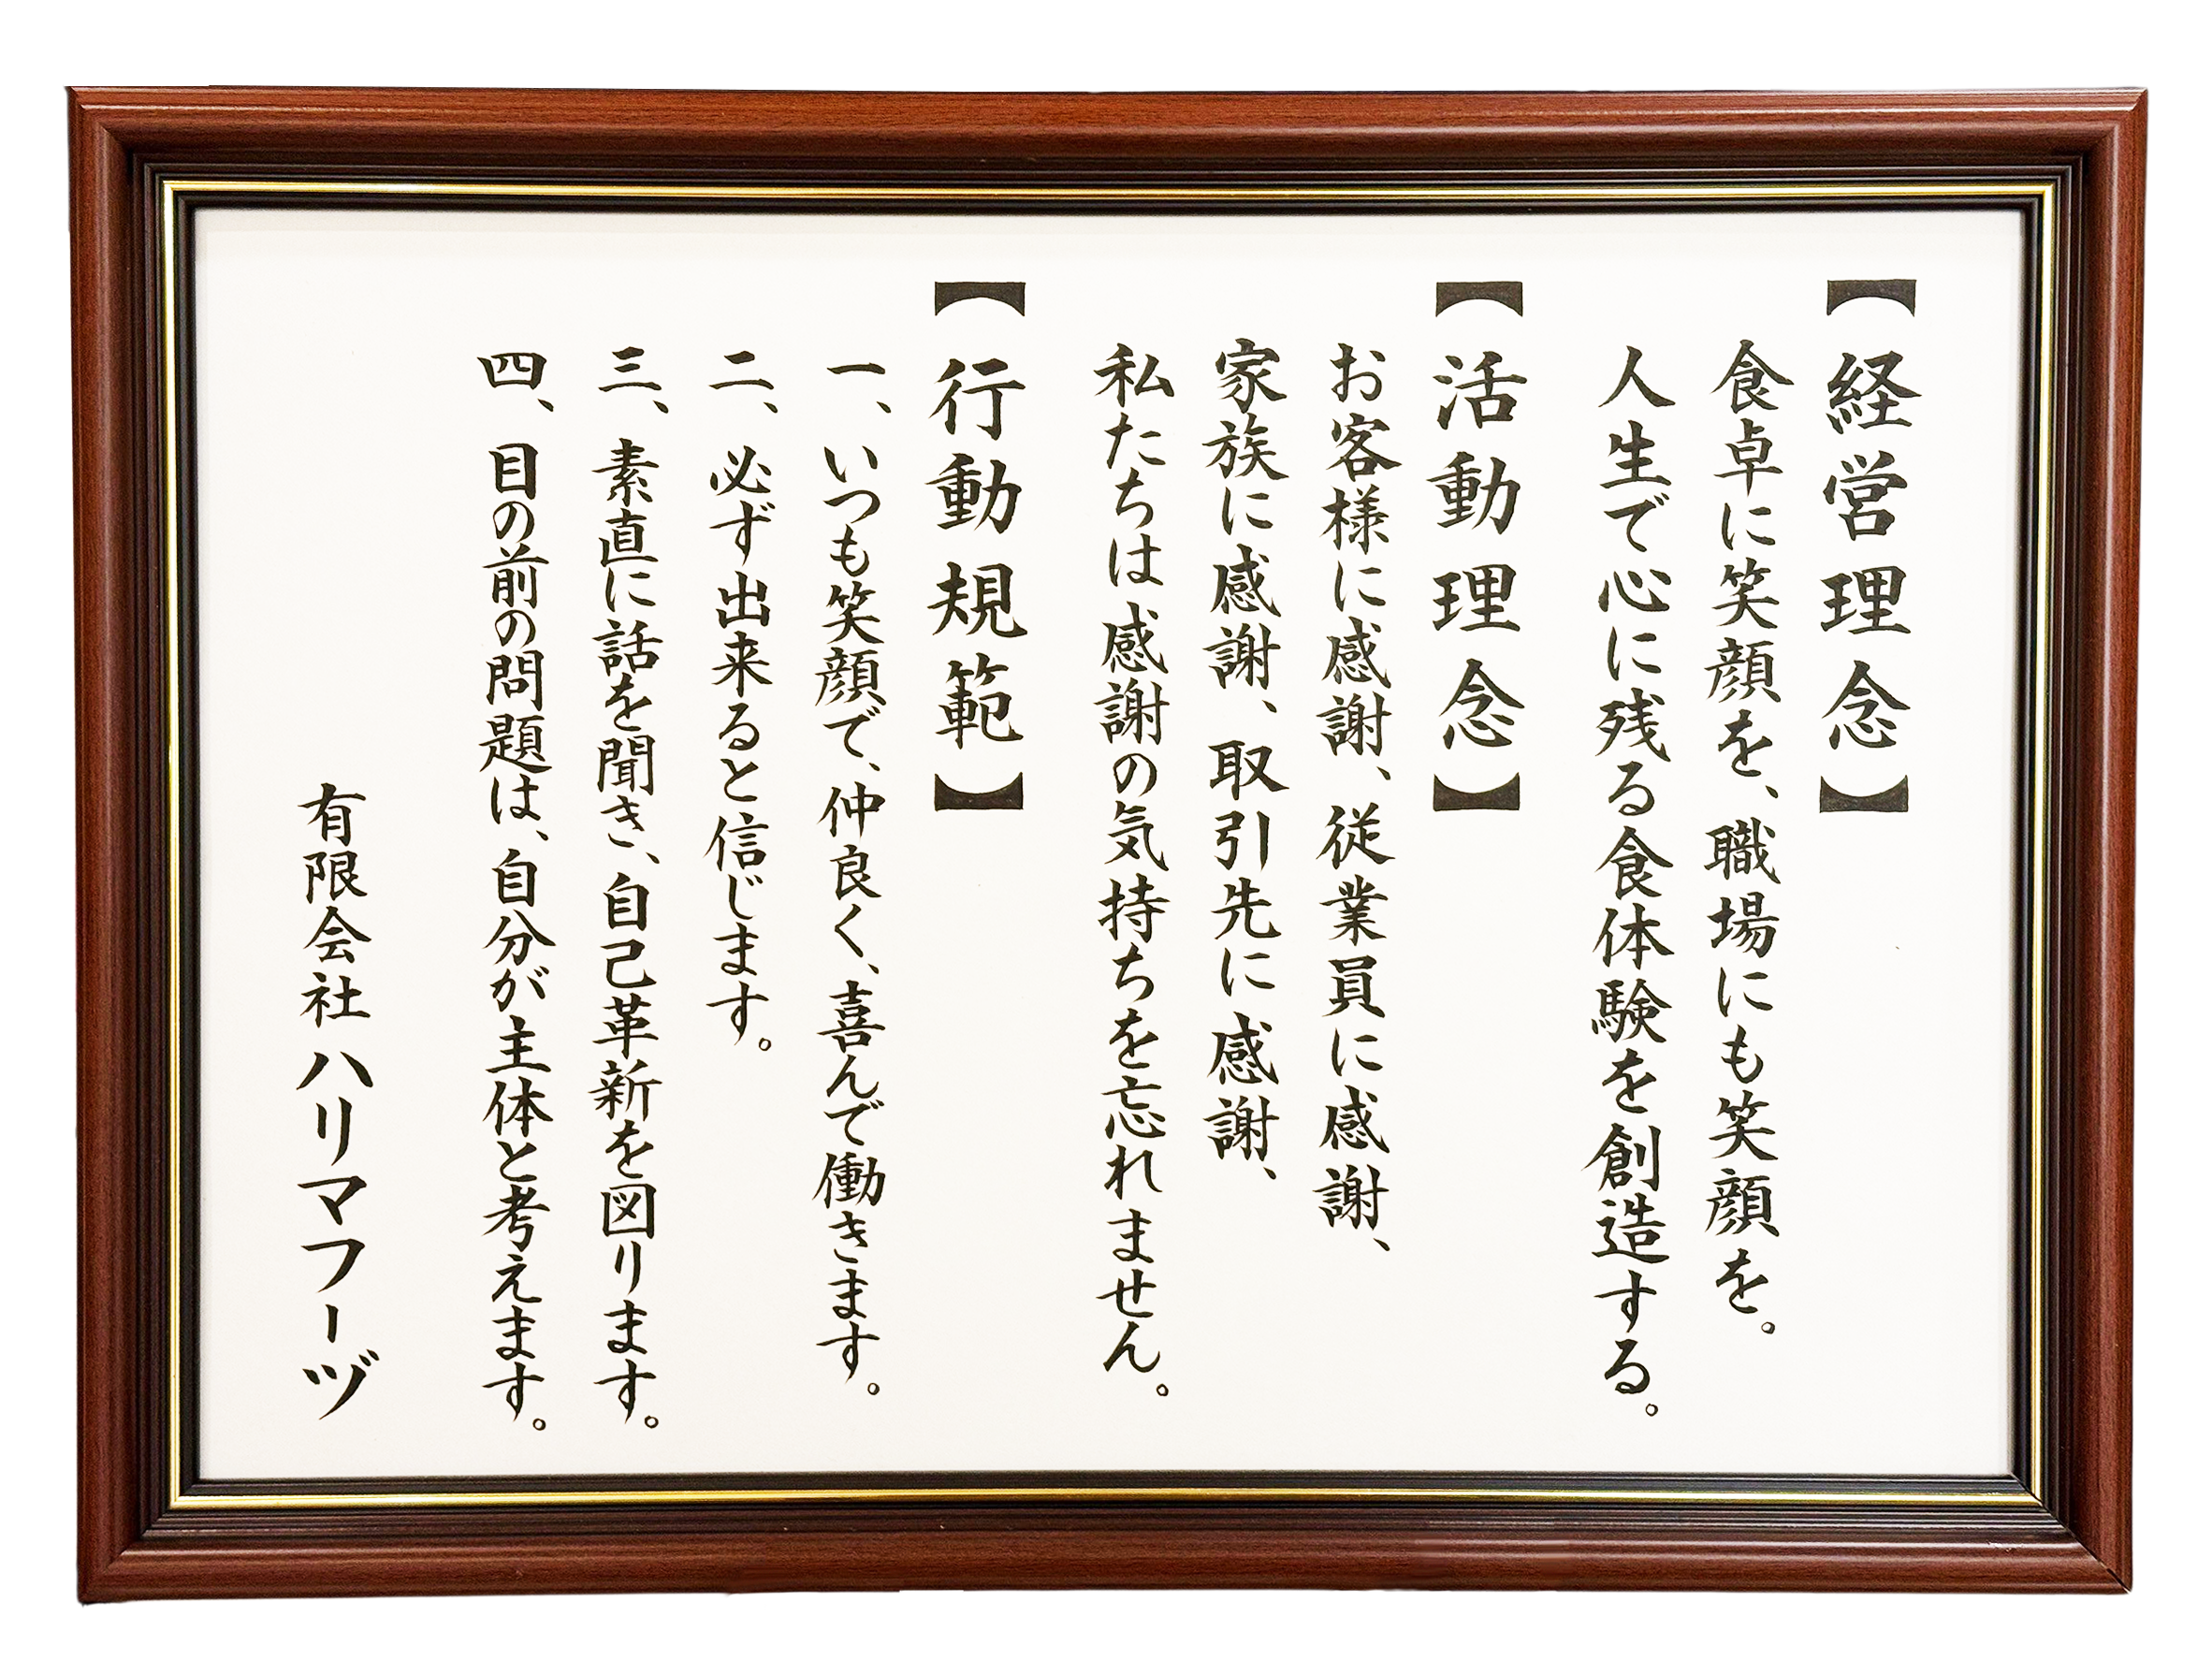 【経営理念】
食卓に笑顔を、職場にも笑顔を。
人生で心に残る食体験を創造する。
【活動理念】
お客様に感謝、従業員に感謝、
家族に感謝、取引先に感謝、
私たちは感謝の気持ちを忘れません。
【行動規範】
一、いつも笑顔で、仲良く、喜んで働きます。
二、必ず出来ると信じます。
三、素直に話を聞き、自己革新を図ります。
四、目の前の問題は、自分が主体と考えます。
有限会社 ハリマフーヅ